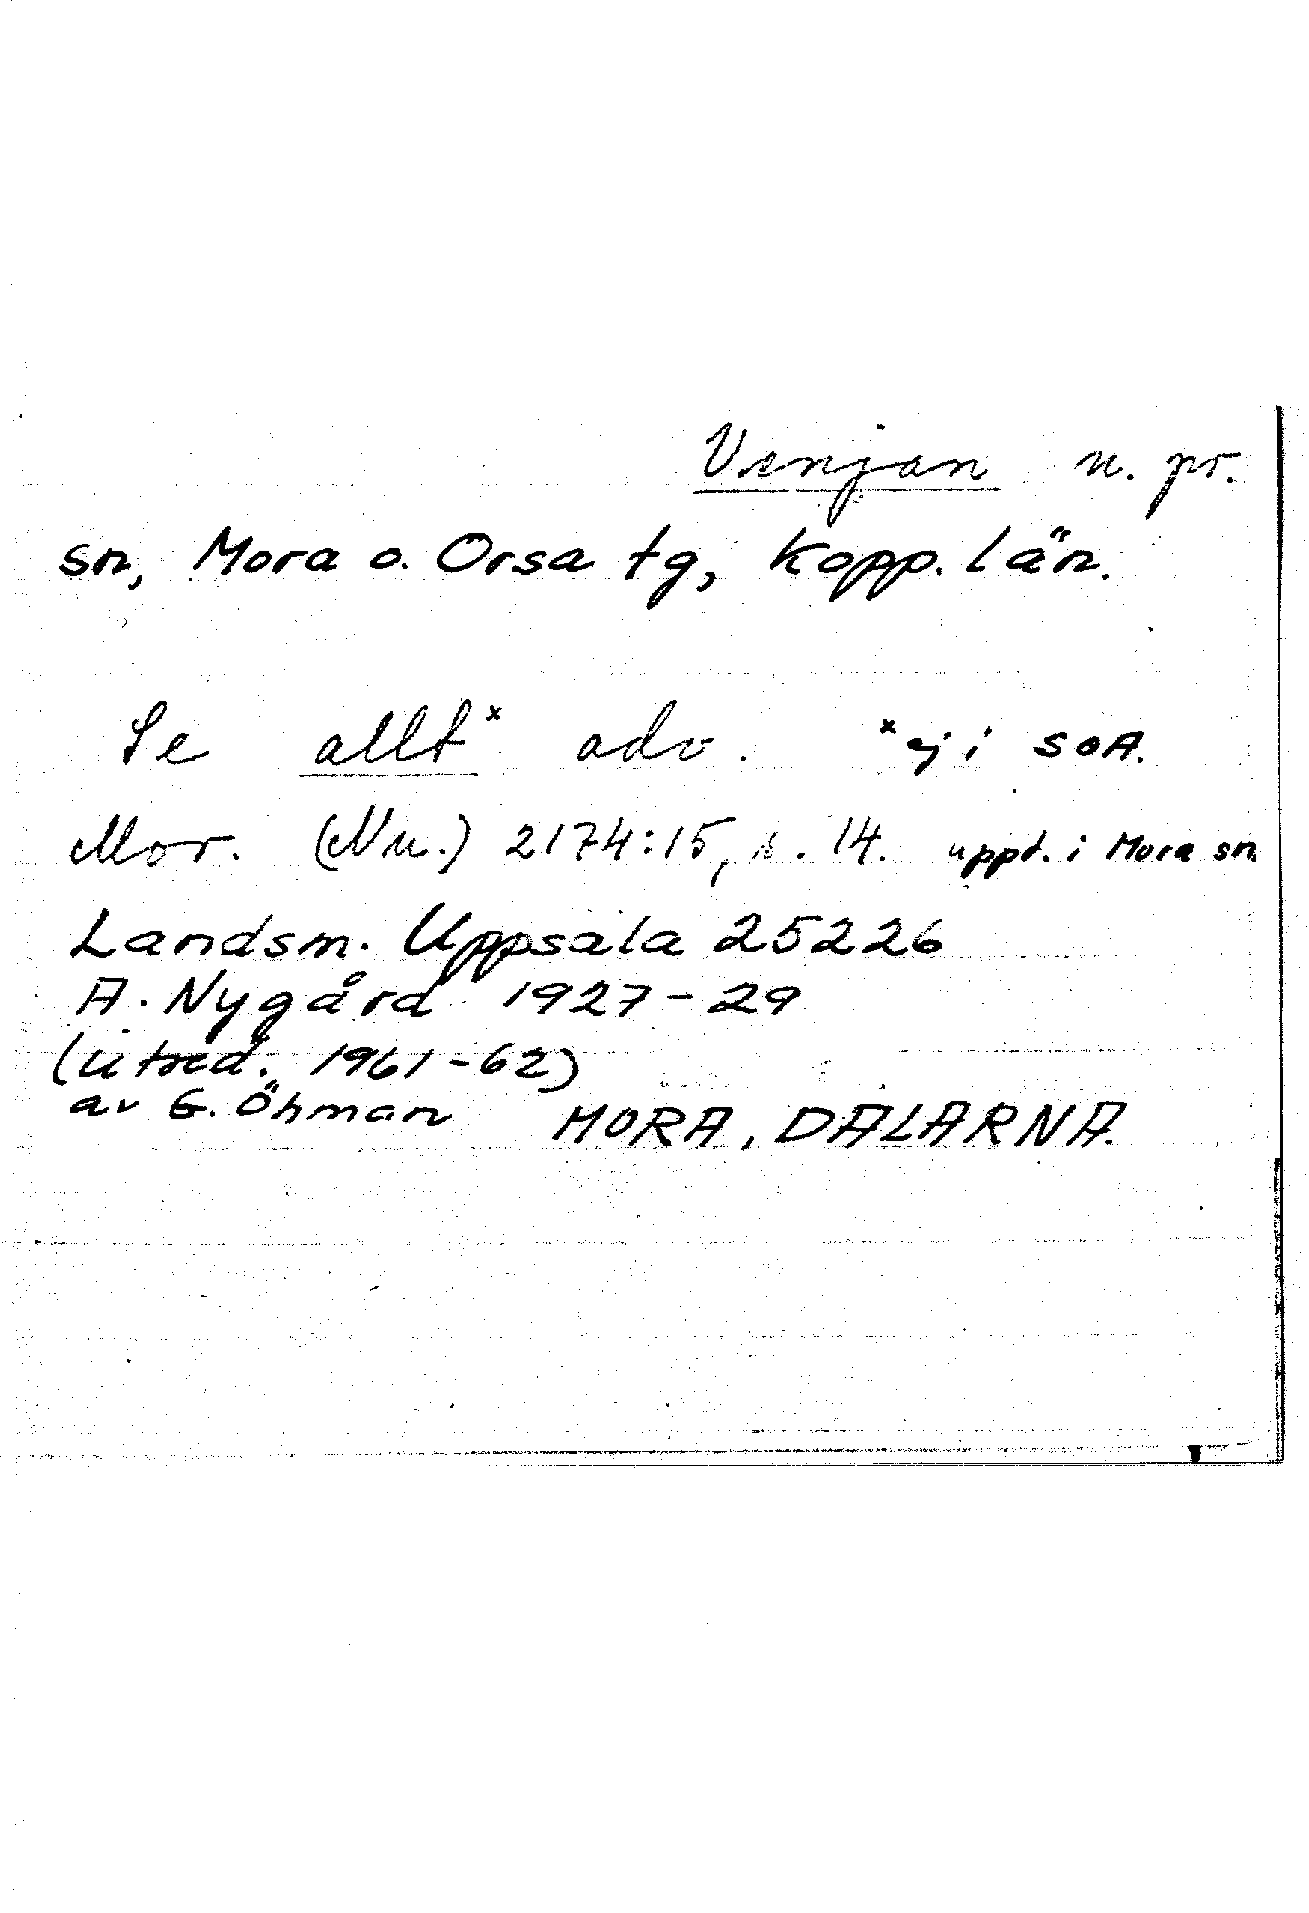 Venjan n. pr.
sn, Mora o. Orsa tg, Kopp. län.
Se allt* adv. *ej i SOA.
Mor. (Nu.) 2174:15, s. 14. uppt. i Mora sn
Landsm. Uppsala 25226
A. Nygård 1927-29
(utred. 1961-62)
av G. Öhman MORA, DALARNA.